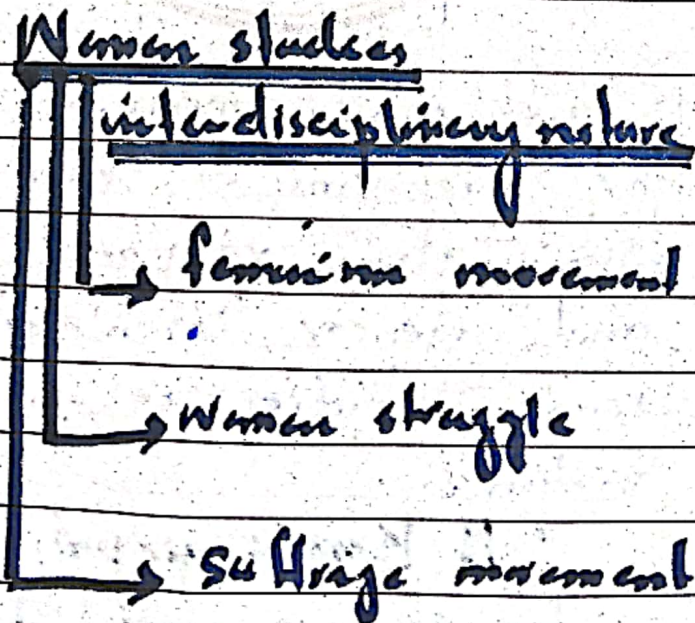 Women studies
interdisciplinary nature
feminism movement
women struggle
Suffrage movement